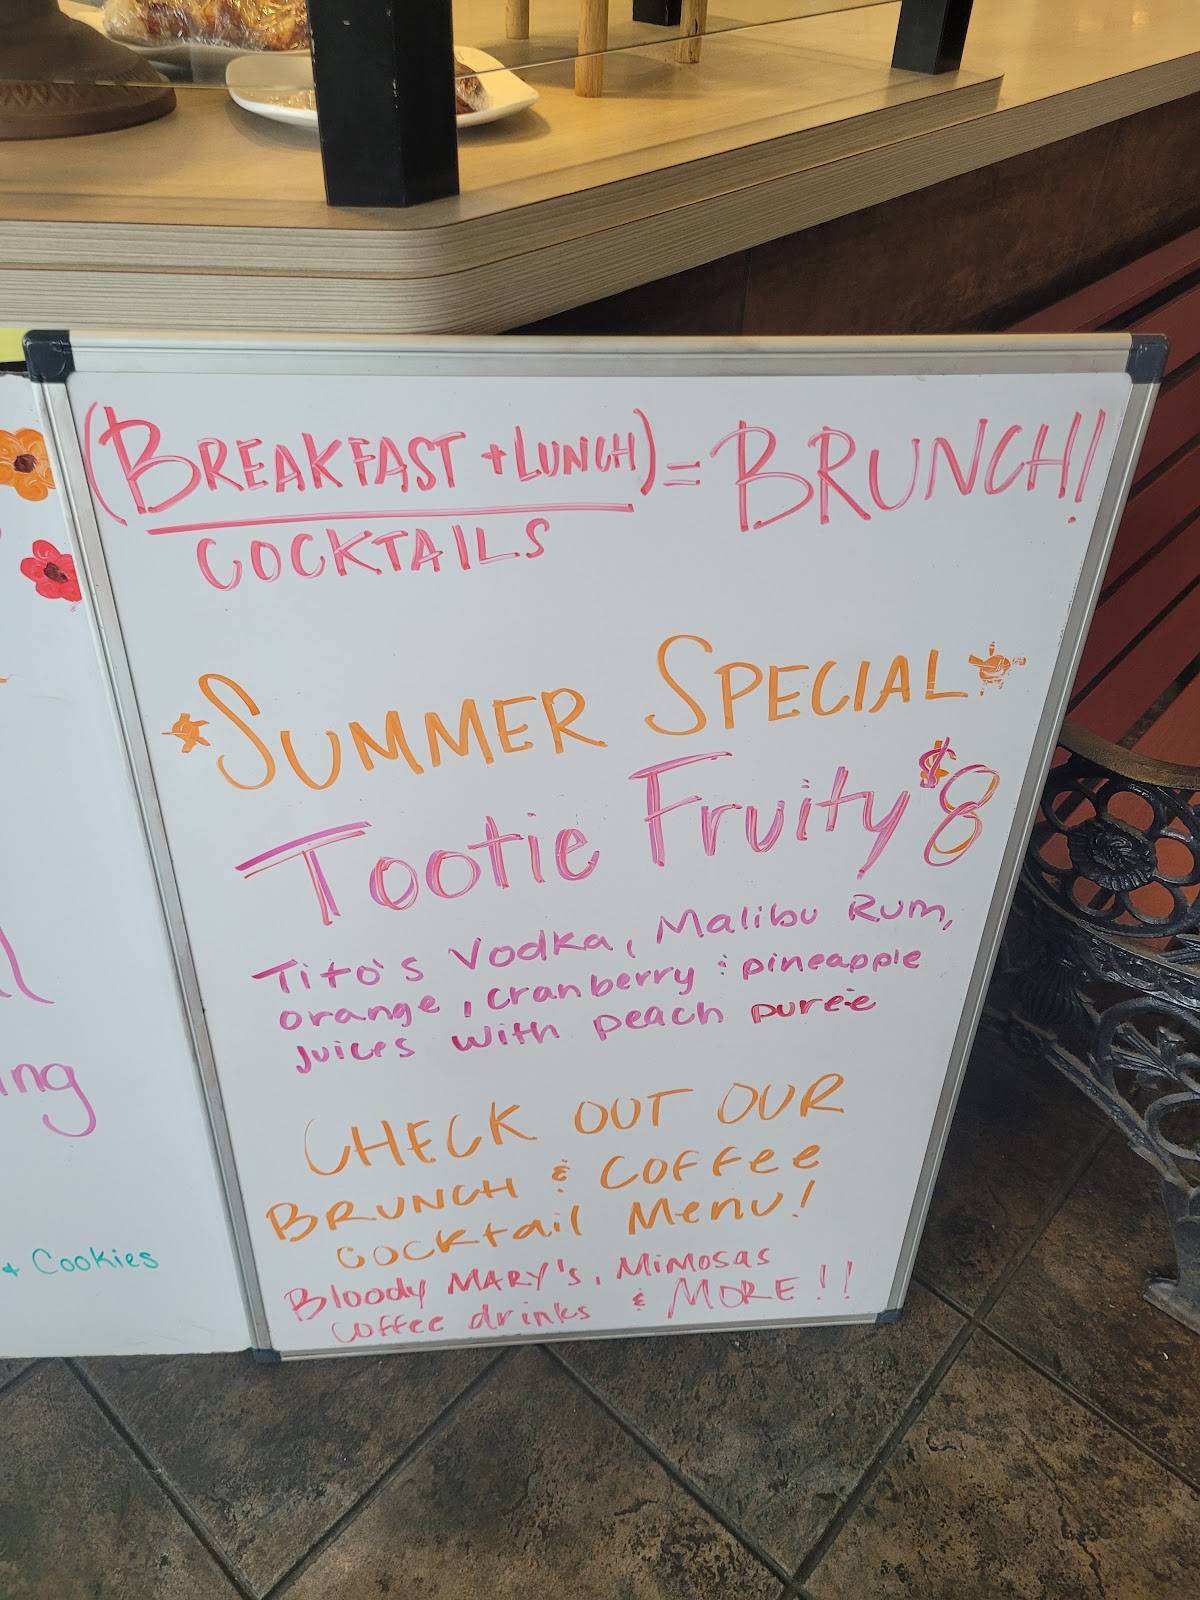 (BREAKFAST + LUNCH) = BRUNCH!
COCKTAILS
*SUMMER SPECIAL*
Tootie Fruity $8
Tito's Vodka, Malibu Rum,
orange, cranberry & pineapple
juices with peach purée
CHECK OUT OUR
BRUNCH & COFFee
Cocktail Menu!
Bloody MARY'S, MiMOSAS
Coffee drinks & MORE!!
ing
+ Cookies